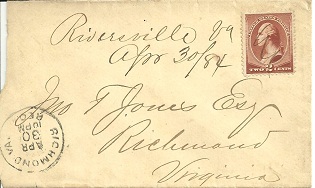 Riversville Va
Apr 30/84
TWO CENTS
Jno T Jones Esq
Richmond
Virginia
RICHMOND VA.
APR
30
10PM
REC'D